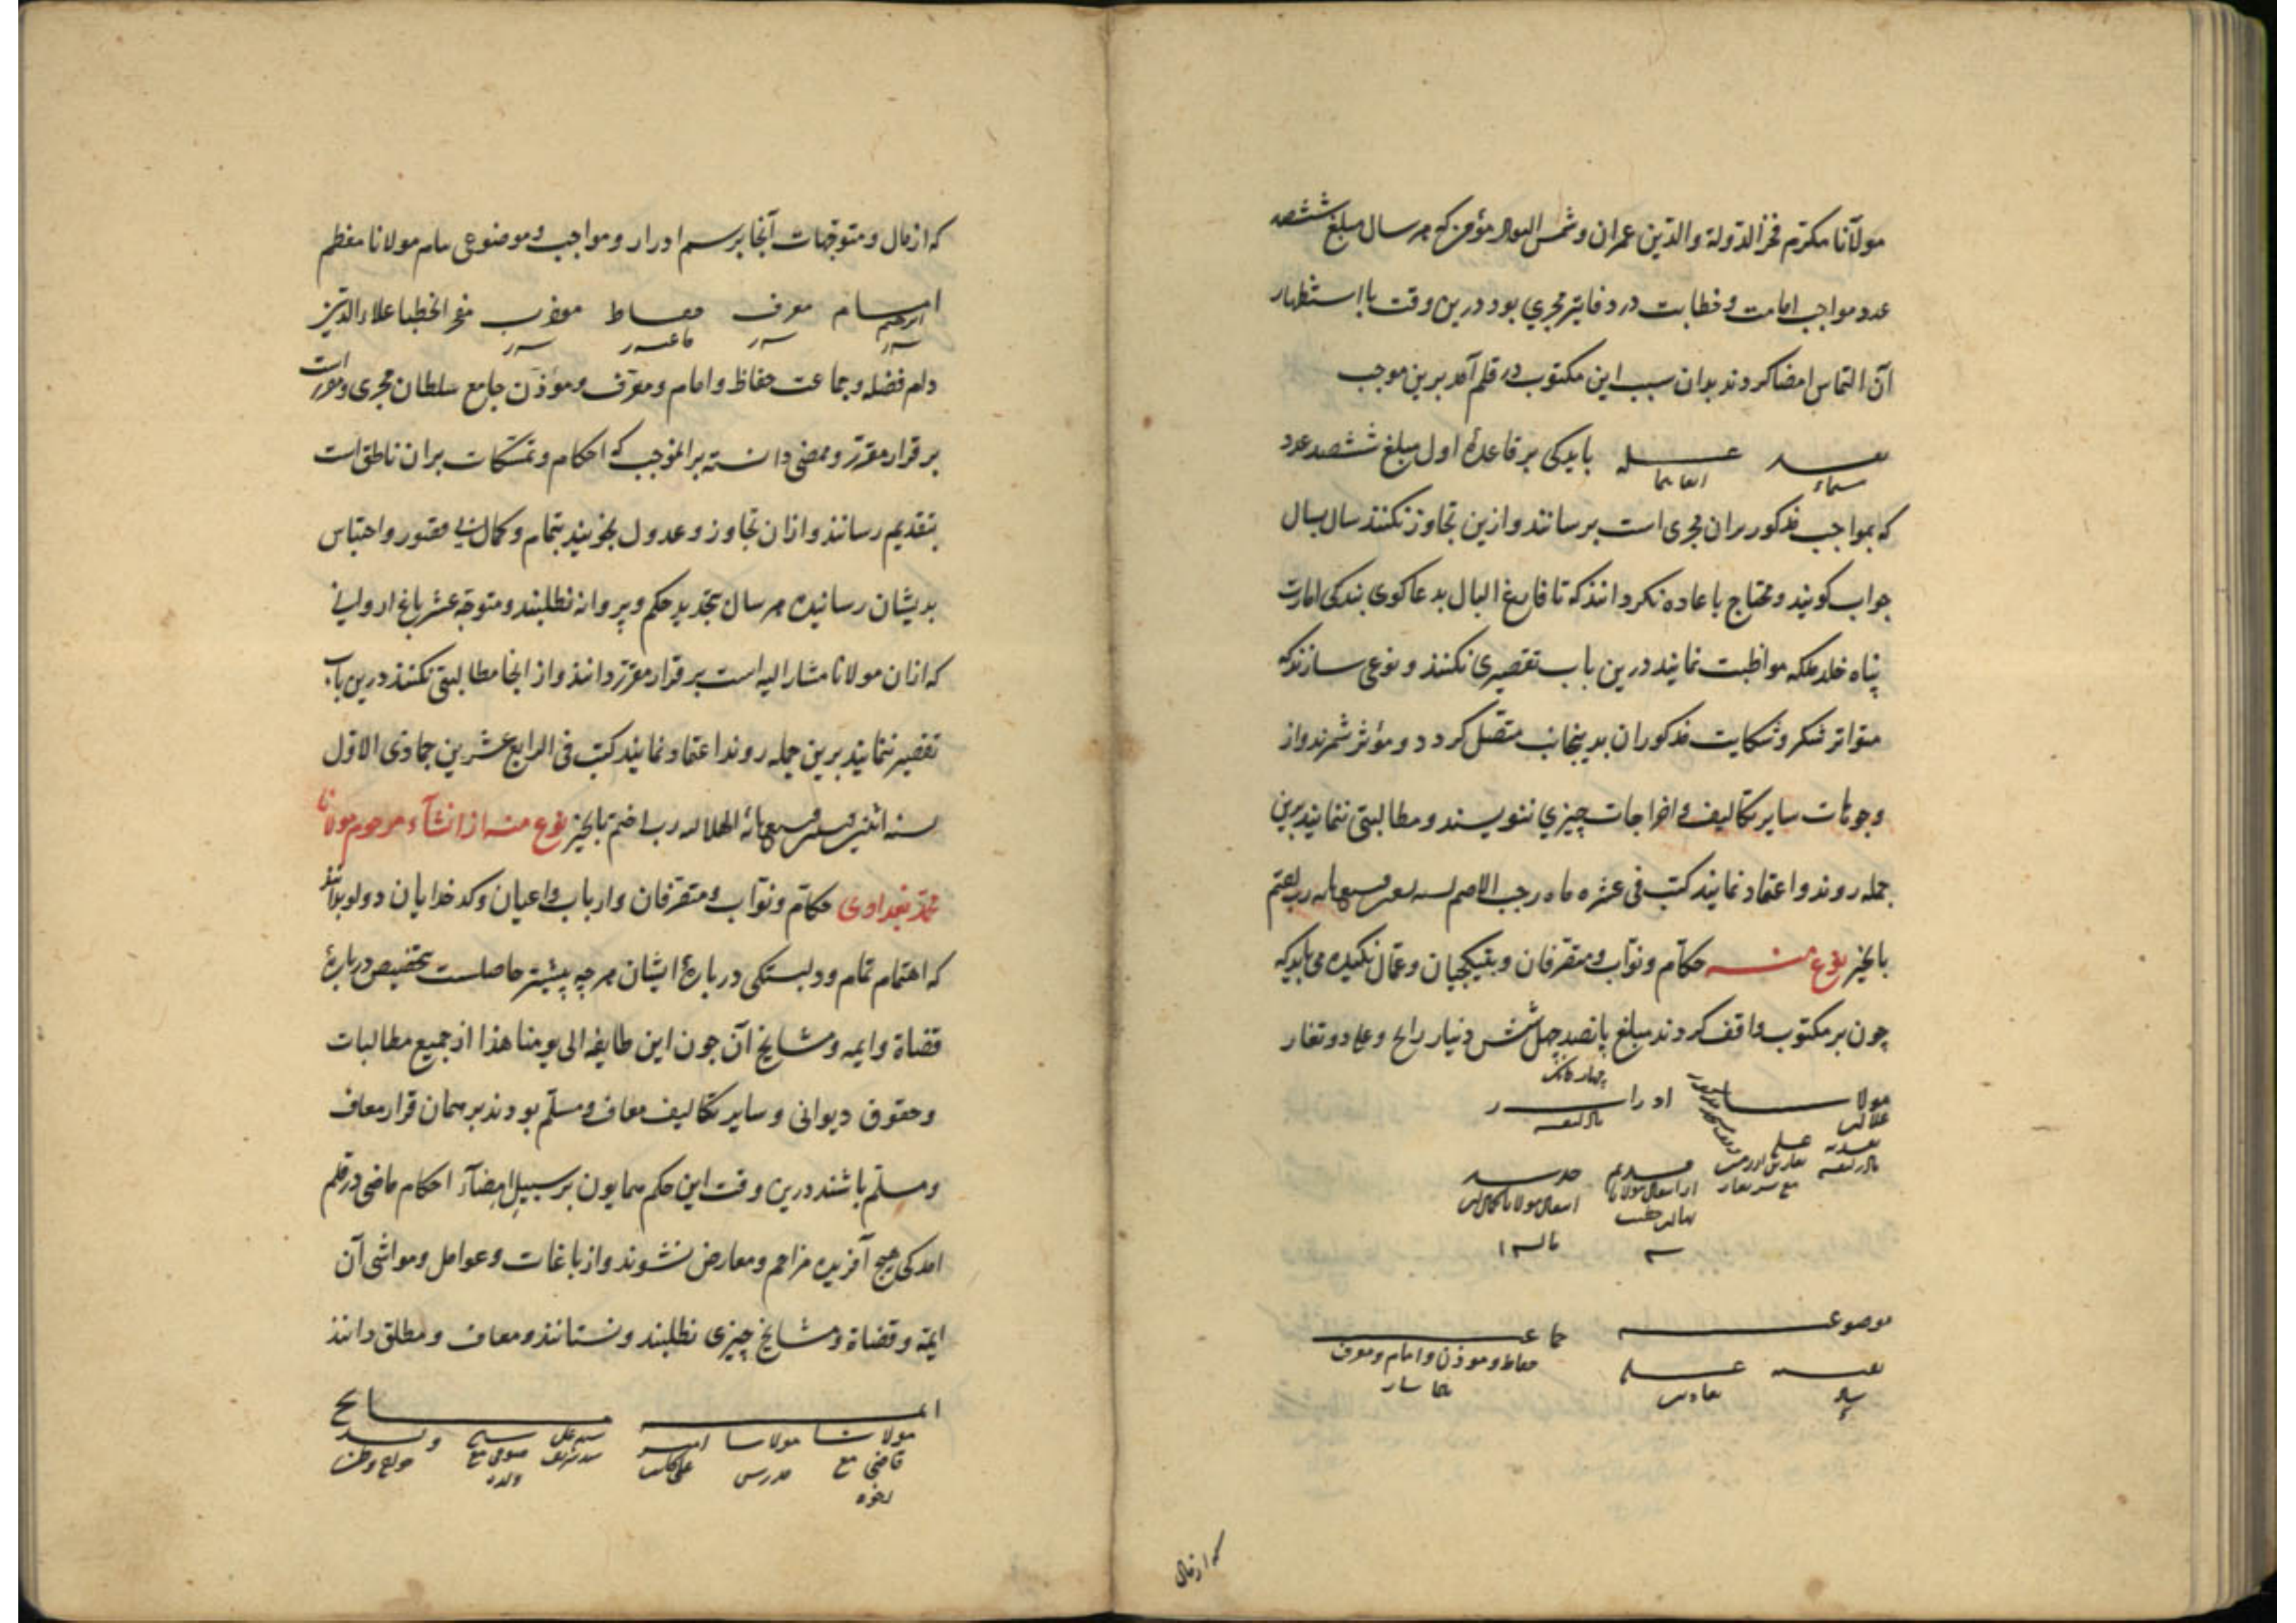 مولانا مکرم فخر الدولة والدین عمران و شمس مؤذن که هر سال مبلغ ششصد
عدد مواجب امامت و خطابت در دفاتر مجری بود درین وقت با استظهار
آن التماس امضا کردند بدان سبب این مکتوب در قلم آمد برین موجب
باید کی بر قاعدهٔ اول مبلغ ششصد عدد
که بمواجب مذکور بران مجری است برسانند و ازین تجاوز نکنند سال بسال
جواب کویند و محتاج باعاده نکردانند که تا فارغ البال بدعاکوی بندکی امارت
پناه خلد ملکه مواظبت نمایند درین باب تقصیری نکنند و نوعی سازند که
متواتر شکر و شکایت مذکوران بدینجانب متصل کردد و مؤثر شمرند و از
وجوهات سایر تکالیف و اخراجات چیزی ننویسند و مطالبتی ننمایند برین
جمله روند و اعتماد نمایند کتب فی عشره ماه رجب الاصم
بالخیر نوع منه حکام و نواب و متصرفان و بتیکچیان و عمال نکیده می باید که
چون بر مکتوب واقف کردند مبلغ پانصد چهل شش دنیار رایج و دو تغار
چهار دانک
مولانا ادرار
موضوعه جماعة
حفاظ و موذن و امام و معرف
که از مال
که از مال و متوجهات آنجا برسم ادرار و مواجب و موضوعی بنام مولانا معظم
امام معرف حفاظ موذن فخر الخطبا علاء الدین
دام فضله و جماعت حفاظ و امام و معرف و موذن جامع سلطان مجری و مقررات
بر قرار مقرر و ممضی دانسته بر الموجب که احکام و تمسکات بران ناطق است
بتقدیم رسانند و ازان تجاوز و عدول نجویند بتمام و کمال بی قصور و احتباس
بدیشان رسانیده هر سال بتجدید حکم و پروانه نطلبند و متوجه عشر باغ
که ازان مولانا مشار الیه است بر قرار مقرر دانند و از انجا مطالبتی نکنند درین باب
تقصیر ننمایند برین جمله روند اعتماد نمایند کتب فی الرابع عشرین جمادی الاول
سنه الهلالیه رب اختم بالخیر نوع منه از انشآء مرحوم مولانا
محمد بغدادی حکام و نواب و متصرفان و ارباب و اعیان و کدخدایان دولو بدانند
که اهتمام تمام و دلبستکی دربارهٔ ایشان هر چه پیشتر حاصلست بتخصیص دربارهٔ
قضاة و ایمه و مشایخ آن چون این طایفه الی یومنا هذا از جمیع مطالبات
و حقوق دیوانی و سایر تکالیف معاف و مسلم بودند بر همان قرار معاف
و مسلم باشند درین وقت این حکم همایون بر سبیل امضآء احکام ماضی در قلم
امد کی هیچ آفریده مزاحم و معارض نشوند و از باغات و عوامل و مواشی آن
ایمة و قضاة و مشایخ چیزی نطلبند و نستانند و معاف و مطلق دانند
ایمه مشایخ
مولانا مولانا امیر
قاضی مع مدرس